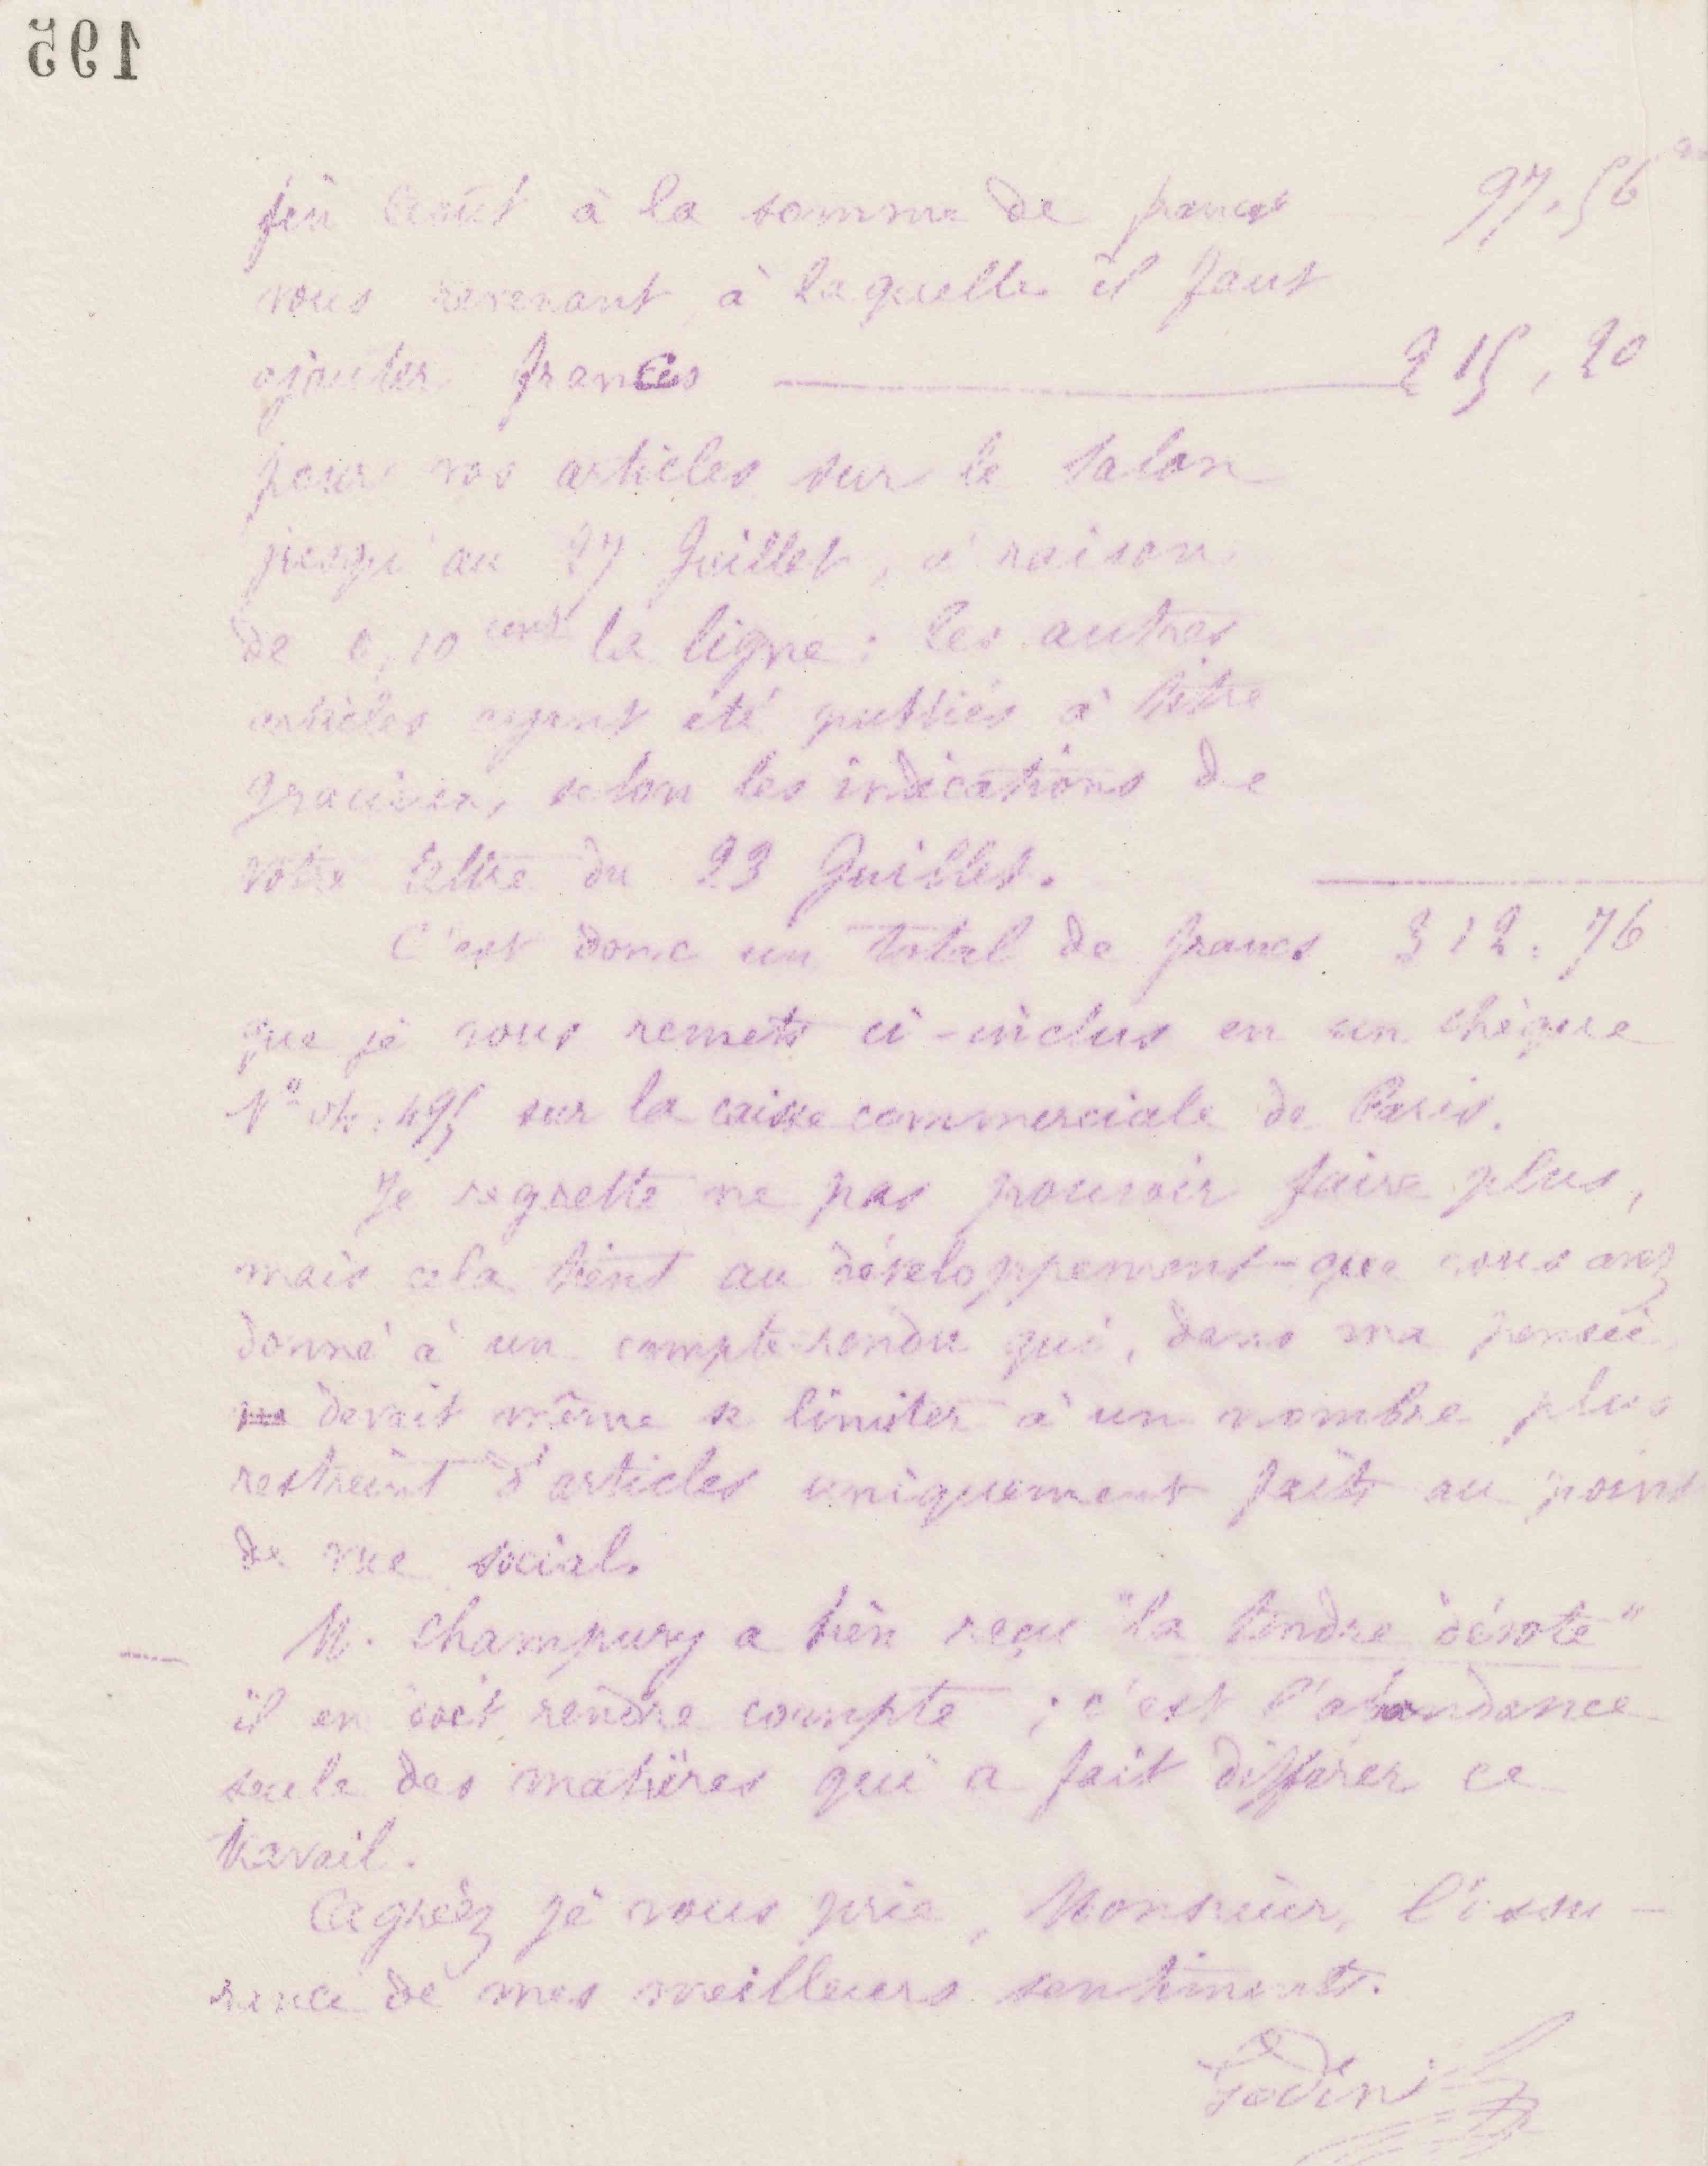 195
fin Août à la somme de francs 97.56
vous revenant, à laquelle il faut
ajouter francs 215,20
pour vos articles sur le Salon
jusqu'au 27 Juillet, à raison
de 0,10 cent la ligne; les autres
articles ayant été publiés à titre
gracieux, selon les indications de
votre lettre du 23 Juillet.
C'est donc un total de francs 312.76
que je vous remets ci-inclus en un chèque
No 495 sur la caisse commerciale de Paris.
Je regrette ne pas pouvoir faire plus,
mais cela tient au développement que vous avez
donné à un compte-rendu qui, dans ma pensée
devait même se limiter à un nombre plus
restreint d'articles uniquement faits au point
de vue social.
M. Champury a bien reçu "la tendre dévote"
il en doit rendre compte; c'est l'abondance
seule des matières qui a fait différer ce
travail.
Agréez je vous prie, Monsieur, l'assu-
rance de mes meilleurs sentiments.
Godin